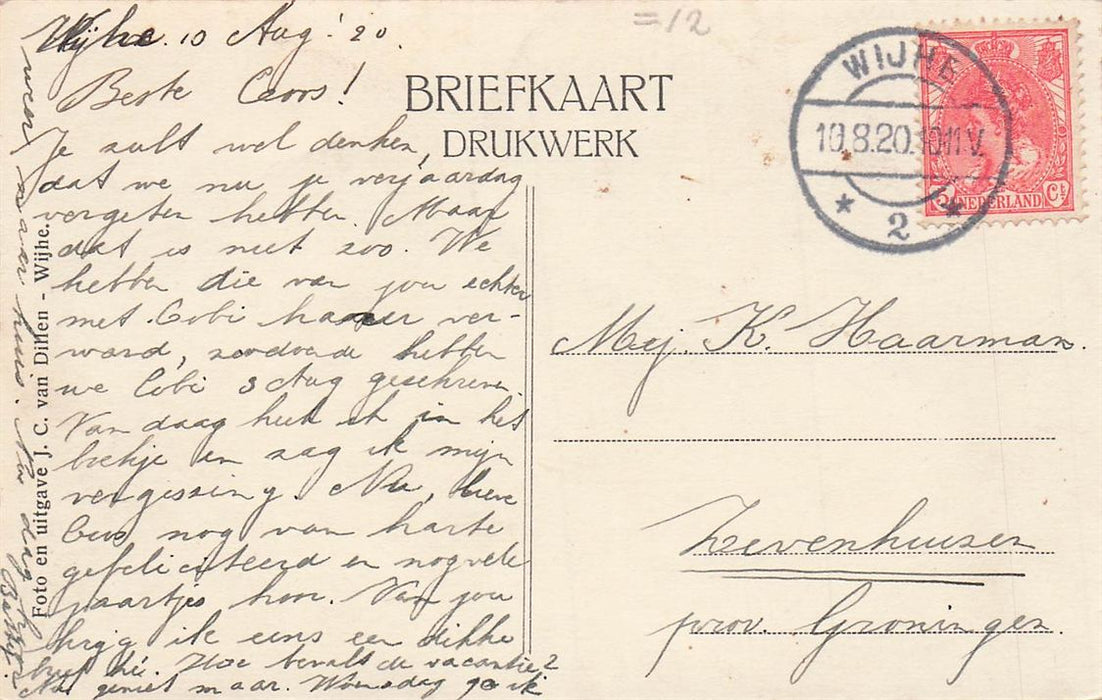 =12
Wijhe. 10 Aug. '20.
Beste Coos!
Je zult wel denken,
dat we nu je verjaardag
vergeten hebben. Maar
dat is niet zoo. We
hebben die van jou echter
met Cobi haar ver-
ward, zoodoende hebben
we Cobi 3 Aug geschreven
Van daag keek ik in het
boekje en zag ik mijn
vergissing. Nu, lieve
Coos nog van harte
gefeliciteerd en nog vele
jaartjes hoor. Van jou
krijg ik eens een dikke
brief hé. Hoe bevalt de vacantie?
Nu geniet maar. Woensdag ga ik
weer naar huis. Nu dag
BRIEFKAART
DRUKWERK
Foto en uitgave J. C. van Dillen - Wijhe.
WIJHE
10.8.20.1011 V.
2
3 NEDERLAND Ct
Mej. K. Haarman.
Zevenhuizen
prov. Groningen.